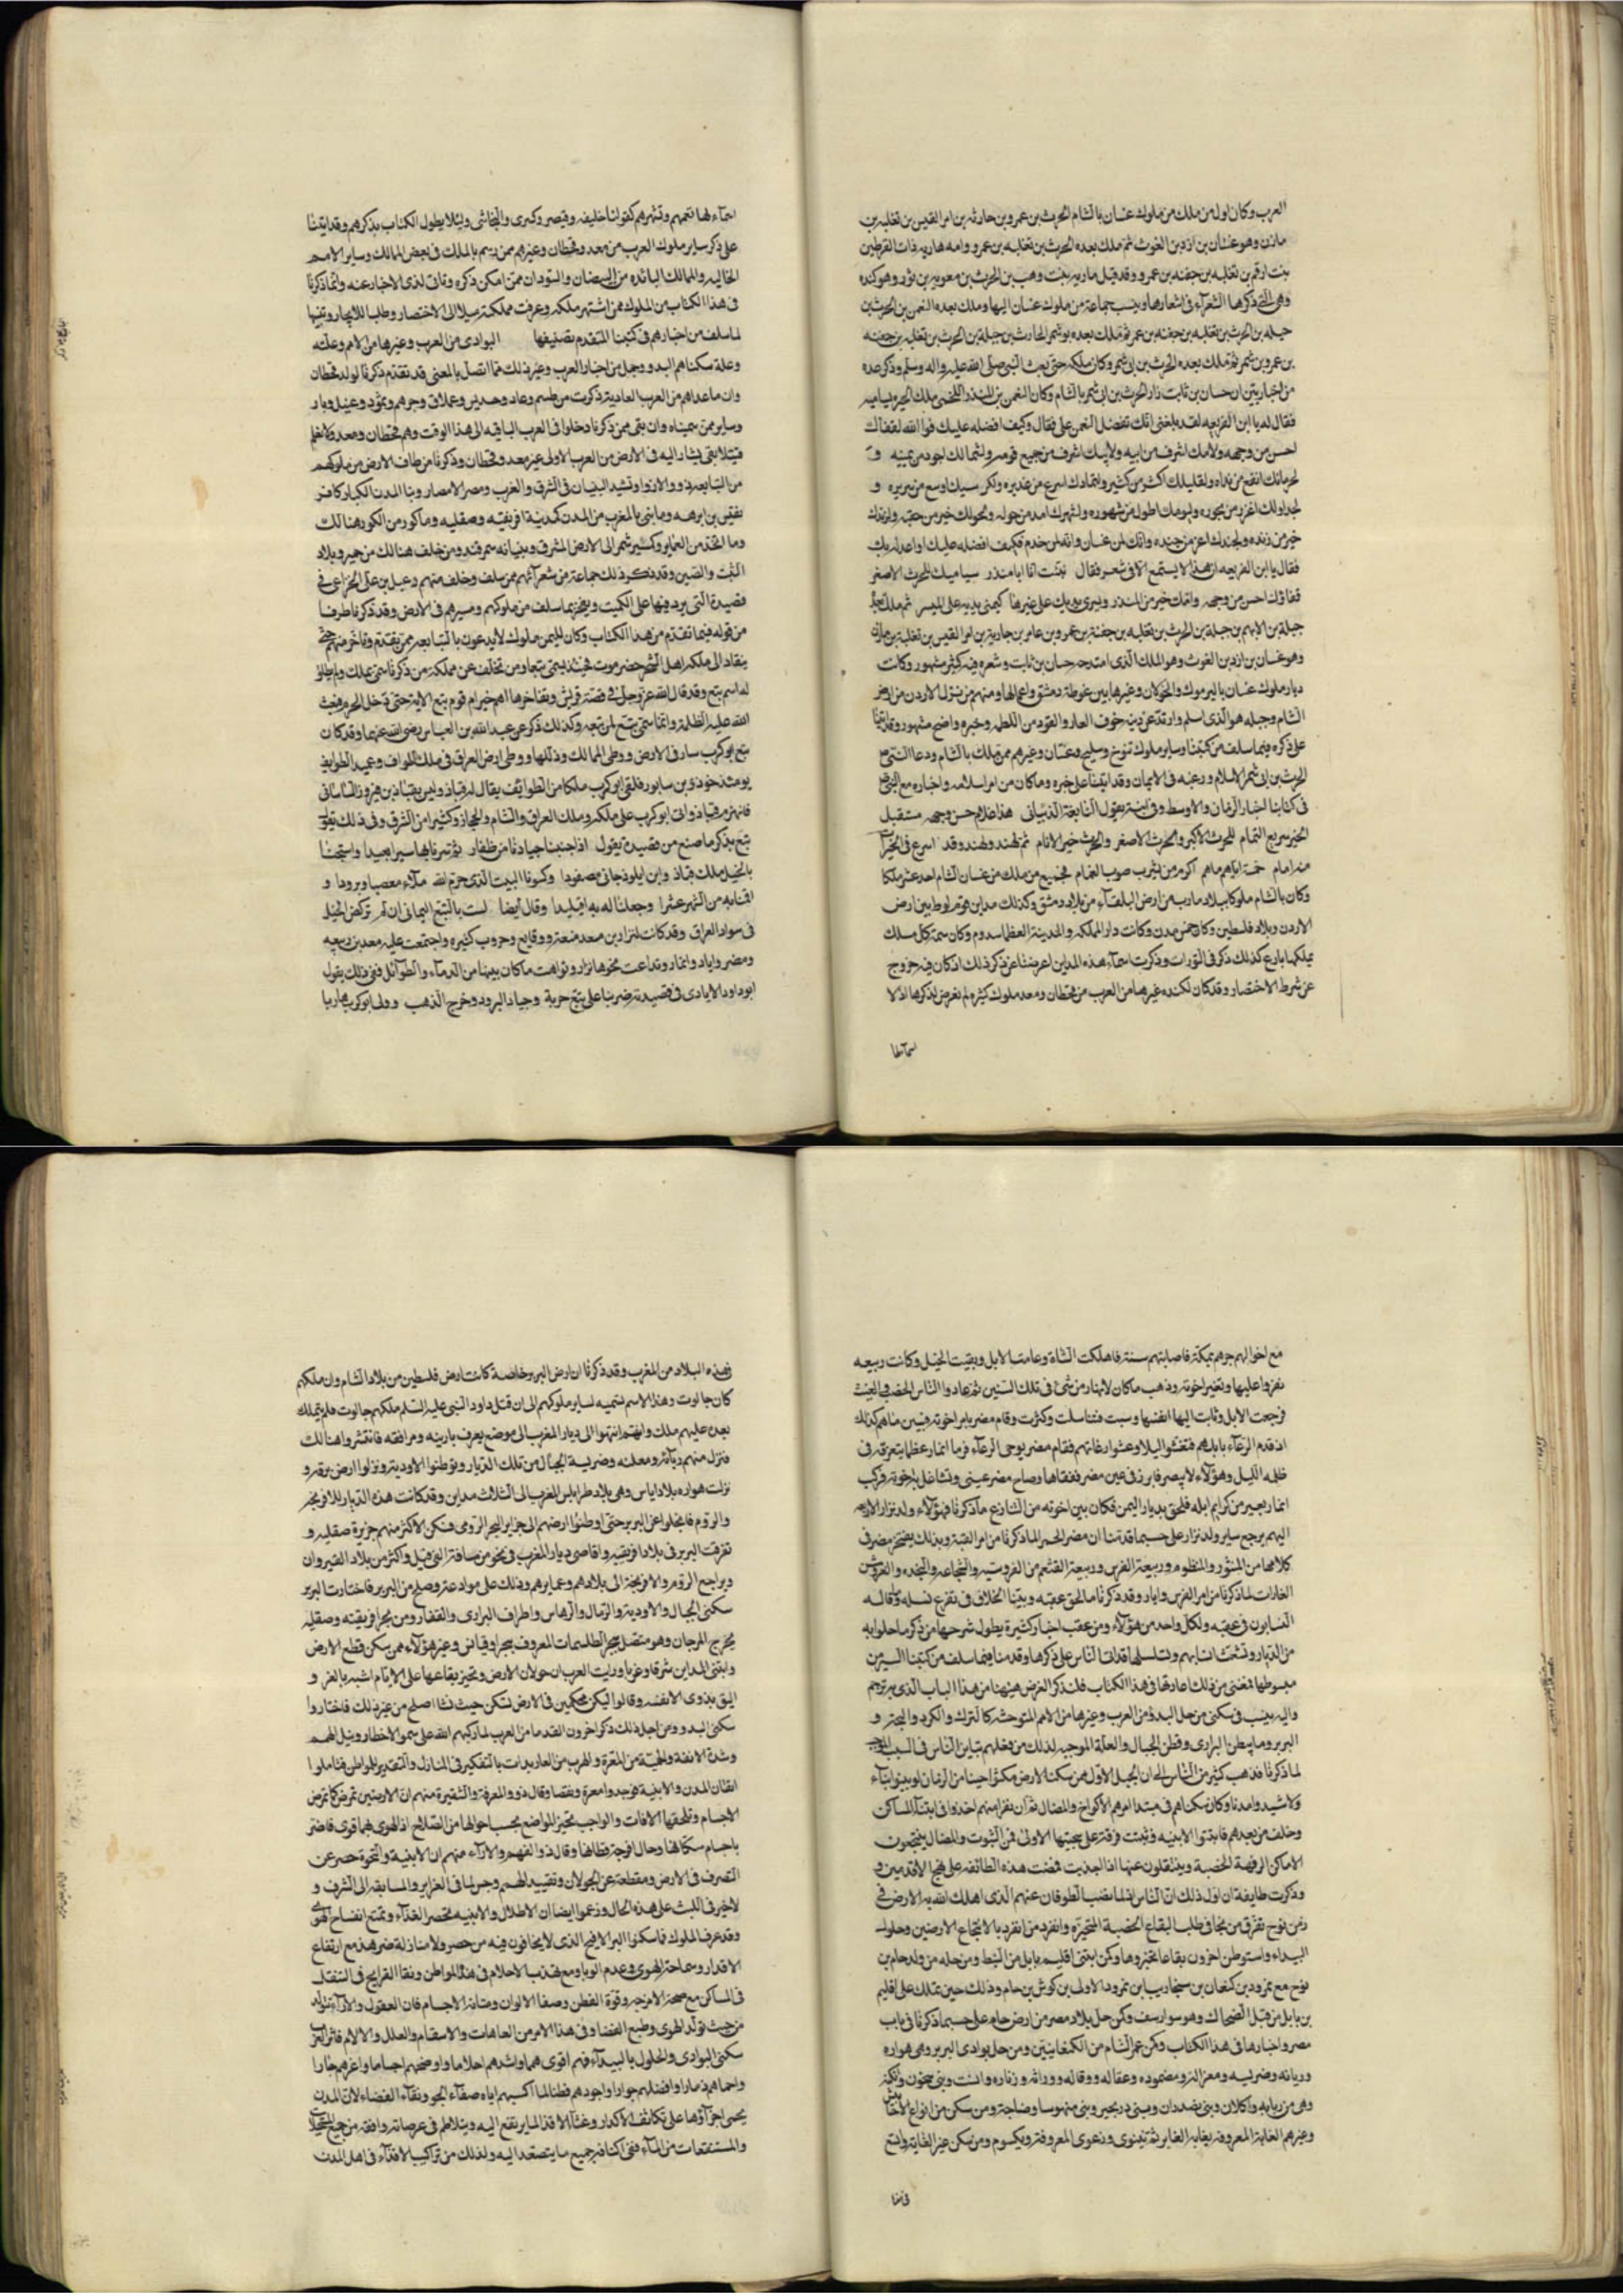 العرب وكان اول من ملك من ملوك غسان بالشام الحرث بن عمرو بن حارثه بن امرالقيس بن ثعلبه بن
مازن وهو غسان بن ازد بن الغوث ثم ملك بعده الحرث بن ثعلبه بن عمرو وامه ماريه ذات القرطين
بنت ارقم بن ثعلبه بن جفنه بن عمرو وقد قيل ماريه بنت وهب بن الحرث بن معويه بن ثور وهو كنده
وهى التى ذكرها الشعرآء فى اشعارها وينسب جماعة من ملوك غسان اليها وملك بعده النعمن بن الحرث بن
جبله بن الحرث بن ثعلبه بن جفنه بن عمر ثم ملك بعده ابو شمر الحارث بن جبلة بن الحرث بن ثعلبه بن جفنه
بن عمرو بن شمر ثم ملك بعده الحرث بن ابى شمر وكان ملكه حتى بعث النبى صلى الله عليه واله وسلم وذكر عده
من اخباريين ان حسان بن ثابت زار الحرث بن ابى شمر بالشام وكان النعمن بن المنذر اللخمى ملك الحيره يساميه
فقال له يا ابن الفريعه لقد بلغنى انك تفضل النعمن على فقال وكيف افضله عليك فوا الله لقفاك
احسن من وجهه ولامك اشرف من ابيه ولابيك اشرف من جميع قومه ولشمالك اجود من يمينه و
لحرمانك انفع من نداه ولقليلك اكثر من كثيره ولثمادك اسرع من غديره ولكرسيك اوسع من سريره و
لجداولك اغزر من بحوره وليومك اطول من شهوره ولشهرك امد من حوله ولحولك خير من حقبه ولزندك
خير من زنده ولجندك اعز من جنده وانك لمن غسان وانه لمن خدم فكيف افضله عليك او اعدله بك
فقال يا ابن الفريعه ان هذا لا يستمع الا فى شعر فقال نبئت انا ابا منذر يساميك للحرث الاصغر
قفاؤك احسن من وجهه وامك خير من المنذر ويسرى يديك على عسرها كيمنى يديه على الميسر ثم ملك بعده
جبلة بن الايهم بن جبلة بن الحرث بن ثعلبه بن جفنة بن عمرو بن عامر بن حارثة بن امرا القيس بن ثعلبة بن مازن
وهو غسان بن ازد بن الغوث وهو الملك الذى امتدحه حسان بن ثابت وشعره فيه كثير مشهور وكانت
ديار ملوك غسان باليرموك والجولان وغيرها بين غوطة دمشق واعمالها ومنهم من نزل الاردن من ارض
الشام وجبله هو الذى اسلم وارتد عن دينه خوف العار والقود من اللطمه وخبره واضح مشهور وقد اتينا
على ذكره فيما سلف من كتبنا وساير ملوك تنوخ وسليح وغسان وغيرهم ممن ملك بالشام ودعا النبى ص
الحرث بن ابى شمر الى الاسلام ورغبه فى الايمان وقد اتينا على خبره وماكان من امر اسلامه واخباره مع النبى ص
فى كتابنا اخبار الزمان والاوسط وفى ابنه يقول النابغة الذبيانى هذا غلام حسن وجهه مستقبل
الخير سريع التمام للحرث الاكبر والحرث الاصغر والحرث خير الانام ثم لهند ولهند وقد اسرع فى الخيرات
منه امام خمسة اباهم ماهم اكرم من يشرب صوب الغمام فجميع من ملك من غسان الشام احد عشر ملكا
وكان بالشام ملوكا ببلاد مارب من ارض البلقآء من بلاد دمشق وكذلك مداين قوم لوط بين ارض
الاردن وبلاد فلسطين وكان خمس مدن وكانت دار المملكه والمدينة العظما سدوم وكان سمة كل ملك
يملكها بارع كذلك ذكر فى التورات وذكرت اسمآء هذه المداين اعرضنا عن ذكر ذلك اذ كان فيه خروج
عن شرط الاختصار وقد كان لكنده غيرها من العرب من قحطان ومعد ملوك كثيره لم نعرض لذكرها اذ لا
اسمآ لها
اسمآء لها تعمهم وتشهرهم كقولنا خليفه وقيصر وكسرى والنجاشى ولئلا يطول الكتاب بذكرهم وقد اتينا
على ذكر ساير ملوك العرب من معد وقحطان وغيرهم ممن وسم بالملك فى بعض الممالك وساير الامم
الخاليه والممالك البائده من البيضان والسودان ممن امكن ذكره وتاتى لذى الاخبار عنه وانما ذكرنا
فى هذا الكتاب من الملوك ممن اشتهر ملكه وعرفت مملكته ميلا الى الاختصار وطلبا للايجاز وتنبيها
لما سلف من اخبارهم فى كتبنا المتقدم تصنيفها البوادى من العرب وغيرها من الامم وعلة
وعلة سكناهم البدو وجمل من اخبار العرب وغير ذلك مما اتصل بالمعنى قد تقدم ذكرنا لولد قحطان
وان ماعداهم من العرب العاديه ذكرت من طسم وعاد وجديس وعملاق وجرهم وثمود وعبيل ووبار
وساير من سميناه وان بقى ممن ذكرنا دخلوا فى العرب الباقيه الى هذا الوقت وهم قحطان ومعد ولا نعلم
قبيلا بقى يشار اليه فى الارض من العرب الاولى غير معد وقحطان وذكرنا من طاف الارض من ملوكهم
من التبابعه ذوو الاذوا وتشيد البنيان فى الشرق والغرب ومصر الامصار وبنا المدن الكبار كافر
يقيس بن ابرهه وما بنى بالمغرب من المدن كمدينة افريقيه وصقليه وماكور من الكور هنالك
وما اتخذ من العماير وكسير شمر الى الارض المشرق وبنيانه سمرقند ومن خلف هنالك من حمير وبلاد
التبت والصين وقد ذكر ذلك جماعة من شعرآئهم ممن سلف وخلف منهم دعبل بن على الخزاعى فى
قصيدة التى يرد فيها على الكميت ويفخر بما سلف من ملوكهم ومسيرهم فى الارض وقد ذكرنا طرفا
من قوله فيما تقدم من هذا الكتاب وكان لليمن ملوك لا يدعون بالتبابعه ممن تقدم وتاخر منهم حتى
ينقاد الى ملكه اهل الشحر وحضرموت فحينئذ يسمى تبعا ومن تخلف عن مملكته من ذكرنا سمى ملك ولم يطلق
له اسم تبع وقد قال الله عز وجل فى قصة قريش وتفاخرها اهم خير ام قوم تبع الاية حتى دخل الحرم فبعث
الله عليه الظلة وانما سمى تبع لمن تبعه وكذلك ذكر عن عبد الله بن العباس رضى الله عنهما وقد كان
تبع ابو كرب سار فى الارض ووطى الممالك وذللها ووطى ارض العراق فى ملك الطوايف وعميد الطوايف
يومئذ خوذو بن سابور فلقى ابو كرب ملكا من الطوائف يقال له قباذ وليس بقباذ بن فيروز الساسانى
فانهزم قباذ واتى ابو كرب على ملكه وملك العراق والشام والحجاز وكثيرا من الشرق وفى ذلك يقول
تبع يذكر ما صنع من قصيدة يقول اذا جنبنا جيادنا من ظفار ثم سرنا بها سيرا بعيدا واستبحنا
بالخيل ملك قباذ وابن ايلوذ جانى مصفودا وكسونا البيت الذى حرم الله ملآء معصبا وبرودا و
اقمنابه من الشهر عشرا وجعلنا له به اقليدا وقال ايضا لست بالتبع اليمانى ان لم تركض الخيل
فى سواد العراق وقد كانت لنزار بن معد معه ووقايع وحروب كثيره واجتمعت عليه معد بن ربيعه
ومضر واياد وانمار وتداعت بجدها نزار وتواهبت ماكان بينها من الدمآء والطوآئل ففى ذلك يقول
ابو داود الايادى فى قصيدته ضربنا على تبع حربة وجياد البرود وخرج الذهب وولى ابوكرب هاربا
مع اخوالهم جرهم بمكة فاصابتهم سنة فاهلكت الشاة وعامة الابل وبقيت الخيل وكانت ربيعه
تغزوا عليها وتغير اخوته وذهب ماكان لانمار من شئ فى تلك السنين ثم عاد والناس الخصب والغيث
فرجعت الابل وثابت اليها انفسها وسبت فتناسلت وكثرت وقام مضر بامر اخوته فبين ماهم كذلك
اذ قدم الرعآء بابلهم فتعشوا ليلا وعشوا رعاتهم فقام مضر يوصى الرعآء فرما انمار عظما يتعرقه فى
ظلمه الليل وهو لا يبصر فابرز فى عين مضر ففقاها وصاح مضر عينى عينى وتشاغل به اخوته فركب
انمار بعير من كرايم ابله فلحق بديار اليمن فكان بين اخوته من التنازع ماذكرنا فهؤلآء ولد نزار الاربعه
اليهم يرجع ساير ولد نزار على حسب ماقدمنا ان مضر الحمر لما ذكرنا من امر القبة وبذلك يفتخر مضر فى
كلامها من المنثور والمنظوم وربيعة الفرس وربيعة القشعم من الفروسيه والشجاعه والنجده وشن
الغارات لما ذكرنا من امر الفرس واياد وقد ذكرنا مالحق عقبه وبينا الخلاف فى تفرع نسله وماقاله
النسابون فى عقبه ولكل واحد من هؤلآء ومن عقب اخبار كثيرة يطول شرحها من ذكر ماحلوا به
من الديار وتشعب انسابهم وتسلسلها قد اتى الناس على ذكرها وقدمنا فيما سلف من كتبنا اليسير من
مبسوطها فغنى من ذلك اعادتها فى هذا الكتاب فلنذكر الغرض هيهنا من هذا الباب الذى به ترجم
واليه ينسب فى سكنى من حل البدو من العرب وغيرها من الامم المتوحشه كالترك والكرد والبجه و
البربر وما يبطن البرارى وقطن الجبال والعلة الموجبه لذلك من فعلهم تباين الناس فى السبب الموجب
لما ذكرنا فذهب كثير من الناس الى ان الجيل الاول ممن سكن الارض مكثوا حينا من الزمان لم يبنوا بناء
ولا شيدوا مدنا وكان سكناهم فى مبتدا امرهم الاكواخ والمضال ثم ان نفرا منهم اخذوا فى ابتنآء المساكن
وخلف من بعدهم فابتنوا الابنيه وثبتت فرقة على سجيتها الاولى فى البيوت والمضال ينتجعون
الاماكن الرفهة الخصبة وينتقلون عنها اذا اجدبت فمضت هذه الطائفه على نهج الاقدمين و
وذكرت طايفة ان اول ذلك ان الناس لما نضب الطوفان عنهم الذى اهلك الله به الارض فى
زمن نوح تفرق من نجا فى طلب البقاع الخصبة المتحيزه وانفرد من انفرد بالانتجاع الارضين وحلول
البيداء واستوطن اخرون بقاعا تخيروها وكن ابتنى اقليم بابل من النبط ومن حله من ولد حام بن
نوح مع نمرود بن كنعان بن سنجاريب ابن نمرود الاولى بن كوش بن حام وذلك حين تملك على اقليم
بن بابل من قبل الضحاك وهو بيوراسف وكمن حل بلاد مصر من ارض حام على حسب ماذكرنا فى باب
مصر واخبارها فى هذا الكتاب وكمن عمر الشام من الكنعانيين ومن حل بوادى البربر وهى هواره
وزيانه وضريسه ومعزاله وغمضوده وعقاله ووقاله وورانه وزناره وانت وبنى مجنون ولكنه
وهى من زبابه واكلان وبنى يضدران وبنى در بجير وبنى منهوسا وضاجة ومن سكن من انواع الاحابيش
وغيرهم الغابة المعروفه بغابه الغابر ثم تبينوى ورعوى المعروفة ويكسوم ومن سكن غير الغابه واتسع
فى هذا
فى هذه البلاد من المغرب وقد ذكرنا ان ارض البربر خاصة كانت ارض فلسطين من بلاد الشام وان ملكهم
كان جالوت وهذا الاسم تسميه لساير ملوكهم الى ان قتل داود النبى عليه السلم ملكهم جالوت فلم يتملك
بعده عليهم ملك وانهم انتهوا الى ديار المغرب الى موضع يعرف بارينه ومرافقه فانتشروا هنالك
فنزل منهم زناتة ومغلنه وضريسة الجبال من تلك الديار وتوطنوا الاوديه ونزلوا ارض برقه و
نزلت هواره بلاد اياس وهى بلاد طرابلس المغرب الى الثلاث مداين وقد كانت هذه الديار للافرنجه
والروم فانجلوا عن البربر حتى اوطنوا ارضهم الى جزاير البحر الرومى فسكن الاكثر منهم جزيرة صقليه و
تفرقت البربر فى بلاد افريقيه واقاصى ديار المغرب فى نحو من مسافة الفى ميل واكثر من بلاد القيروان
وتراجع الروم والافرنجة الى بلادهم وعمايرهم وذلك على موادعة وصلح من البربر فاختارت البربر
سكنى الجبال والاوديه والرمال والدهاس واطراف البرارى والقفار ومن بحر افريقيه وصقليه
يخرج المرجان وهو متصل ببحر الظلمات المعروف ببحر اوقيانس وغير هؤلآء ممن سكن قطع الارض
وابتنى المداين شرقا وغربا ورايت العرب ان جولان الارض وتخير بقاعها على الايام اشبه بالعز و
اليق بذوى الانفه وقالوا ليكن محكمين فى الارض نسكن حيث نشا اصلح من غير ذلك فاختاروا
سكنى البدو ومن اجل ذلك ذكر اخرون القدما من العرب لما ركبهم الله على سمو الاخطار ونبل الهمم
وشدة الانفة والحمية من المعرة والهرب من العار بدات بالتفكير فى المنازل والتقدير للمواطن فتاملوا
اتقان المدن والابنيه فوجدوا معرة ونقصا وقال ذوو المعرفة والتميز منهم ان الارضين تمرض كما تمرض
الاجسام وتلحقها الافات والواجب تخير المواضع بحسب احوالها من الصلاح اذ الهوى ربما قوى فاضر
باجسام سكانها وحال امزجة قطانها وقال ذو الفهم والارآء منهم ان الابنية والتحوة حصر عن
التصرف فى الارض ومقطعة عن الجولان وتقييد للهمم وحبس لما فى الغرايز والمسابقه الى الشرف و
لاخير فى اللبث على هذه الحال وزعموا ايضا ان الاطلال والابنيه تحصر الغذآء وتمنع انفساح الهوى
وقد عرف الملوك فاسكنوا البر الافيح الذى لا يخافون فيه من حصر ولا منازلة ضر هذه مع ارتفاع
الاقدار وسماحة الهوى وعدم الوبا ومع مهذب الاحلام فى هذه المواطن ونقا القرايح فى التنقل
فى المساكن مع صحة الامزجه وقوة الفطن وصفا الالوان ومتانة الاجسام فان العقول والارآء تتولد
من حيث تولد الهوى وطبع الفضا وفى هذا الامر من العاهات والاسقام والعلل والالام فاثر العرب
سكنى البوادى والحلول بالبيدآء فهم اقوى همما واشدهم احلاما واوضحهم اجساما واعزهم جارا
واحماهم ذمارا وافضلهم جوارا واجودهم فطنا لما اكسبهم اياه صفآء الجو ونقآء الفضاء لان المدن
يحصى اجزآؤها على تكاثف الاكدار وغثآء الاقذا لما يرتفع اليه ويتلاطم فى عرصاته وافقه من جميع
والمستنقعات من المآء ففى اكنافه جميع ما يتصعد اليه ولذلك من تراكيب الاقذآء فى اهل المدن